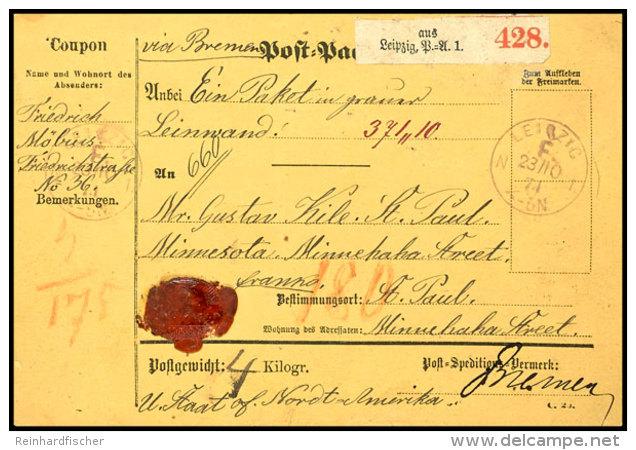 Coupon
Name und Wohnort des
Absenders:
Friedrich
Möbius
Friedrichstrasse
No 36.
Bemerkungen.
175
via Bremen
Post-Pac
aus
Leipzig, P.-A. 1.
428.
Zum Aufkleben
der Freimarken.
Anbei Ein Paket in grauer
Leinwand. 371,,10.
660
An
LEIPZIG
F.
23/10
N
Mr. Gustav Kile. St. Paul.
Minnesota. Minnehaha Street.
franco
180
Bestimmungsort: St. Paul.
Wohnung des Adressaten: Minnehaha Street.
Postgewicht: 4 Kilogr.
Post-Speditions-Vermerk:
Bremen
U. Staat of Nordt-Amerika.
Reinhardfischer
delcampe.net